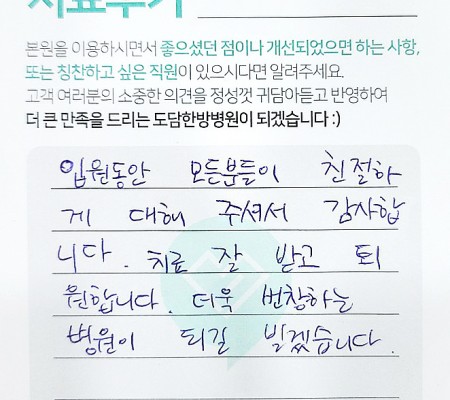 치료후기
본원을 이용하시면서 좋으셨던 점이나 개선되었으면 하는 사항,
또는 칭찬하고 싶은 직원이 있으시다면 알려주세요.
고객 여러분의 소중한 의견을 정성껏 귀담아듣고 반영하여
더 큰 만족을 드리는 도담한방병원이 되겠습니다 :)
입원동안 모든분들이 친절하
게 대해 주셔서 감사합
니다. 치료 잘 받고 퇴
원합니다. 더욱 번창하는
병원이 되길 빌겠습니다.